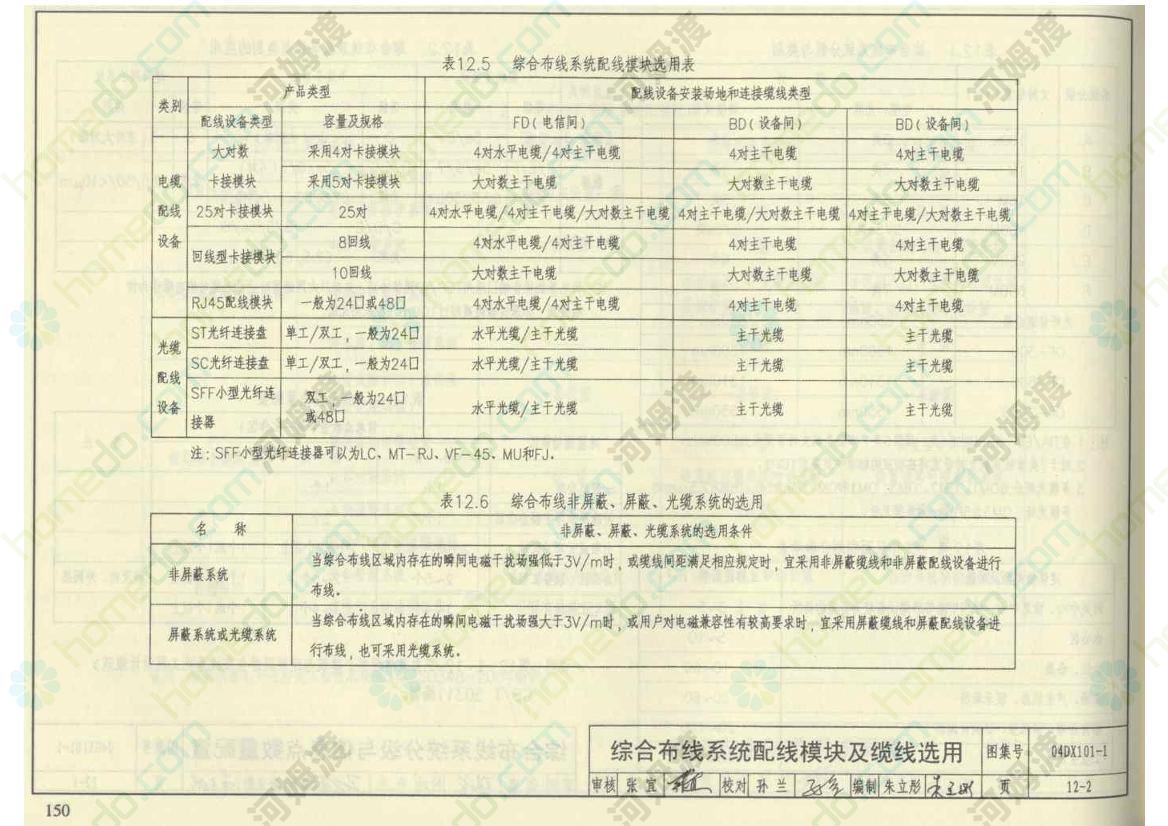 表12.5 综合布线系统配线模块选用表
类别 产品类型 配线设备安装场地和连接缆线类型
配线设备类型 容量及规格 FD(电信间) BD(设备间) BD(设备间)
电缆配线设备 大对数卡接模块 采用4对卡接模块 4对水平电缆/4对主干电缆 4对主干电缆 4对主干电缆
采用5对卡接模块 大对数主干电缆 大对数主干电缆 大对数主干电缆
25对卡接模块 25对 4对水平电缆/4对主干电缆/大对数主干电缆 4对主干电缆/大对数主干电缆 4对主干电缆/大对数主干电缆
回线型卡接模块 8回线 4对水平电缆/4对主干电缆 4对主干电缆 4对主干电缆
10回线 大对数主干电缆 大对数主干电缆 大对数主干电缆
RJ45配线模块 一般为24口或48口 4对水平电缆/4对主干电缆 4对主干电缆 4对主干电缆
光缆配线设备 ST光纤连接盘 单工/双工,一般为24口 水平光缆/主干光缆 主干光缆 主干光缆
SC光纤连接盘 单工/双工,一般为24口 水平光缆/主干光缆 主干光缆 主干光缆
SFF小型光纤连接器 双工,一般为24口或48口 水平光缆/主干光缆 主干光缆 主干光缆
注:SFF小型光纤连接器可以为LC、MT-RJ、VF-45、MU和FJ.
表12.6 综合布线非屏蔽、屏蔽、光缆系统的选用
名 称 非屏蔽、屏蔽、光缆系统的选用条件
非屏蔽系统 当综合布线区域内存在的瞬间电磁干扰场强低于3V/m时,或缆线间距满足相应规定时,宜采用非屏蔽缆线和非屏蔽配线设备进行
布线。
屏蔽系统或光缆系统 当综合布线区域内存在的瞬间电磁干扰场强大于3V/m时,或用户对电磁兼容性有较高要求时,宜采用屏蔽缆线和屏蔽配线设备进
行布线,也可采用光缆系统。
综合布线系统配线模块及缆线选用 图集号 04DX101-1
审核 张宜 校对 孙兰 编制 朱立彤 朱立彤 页 12-2
150
河姆渡
homedo.com